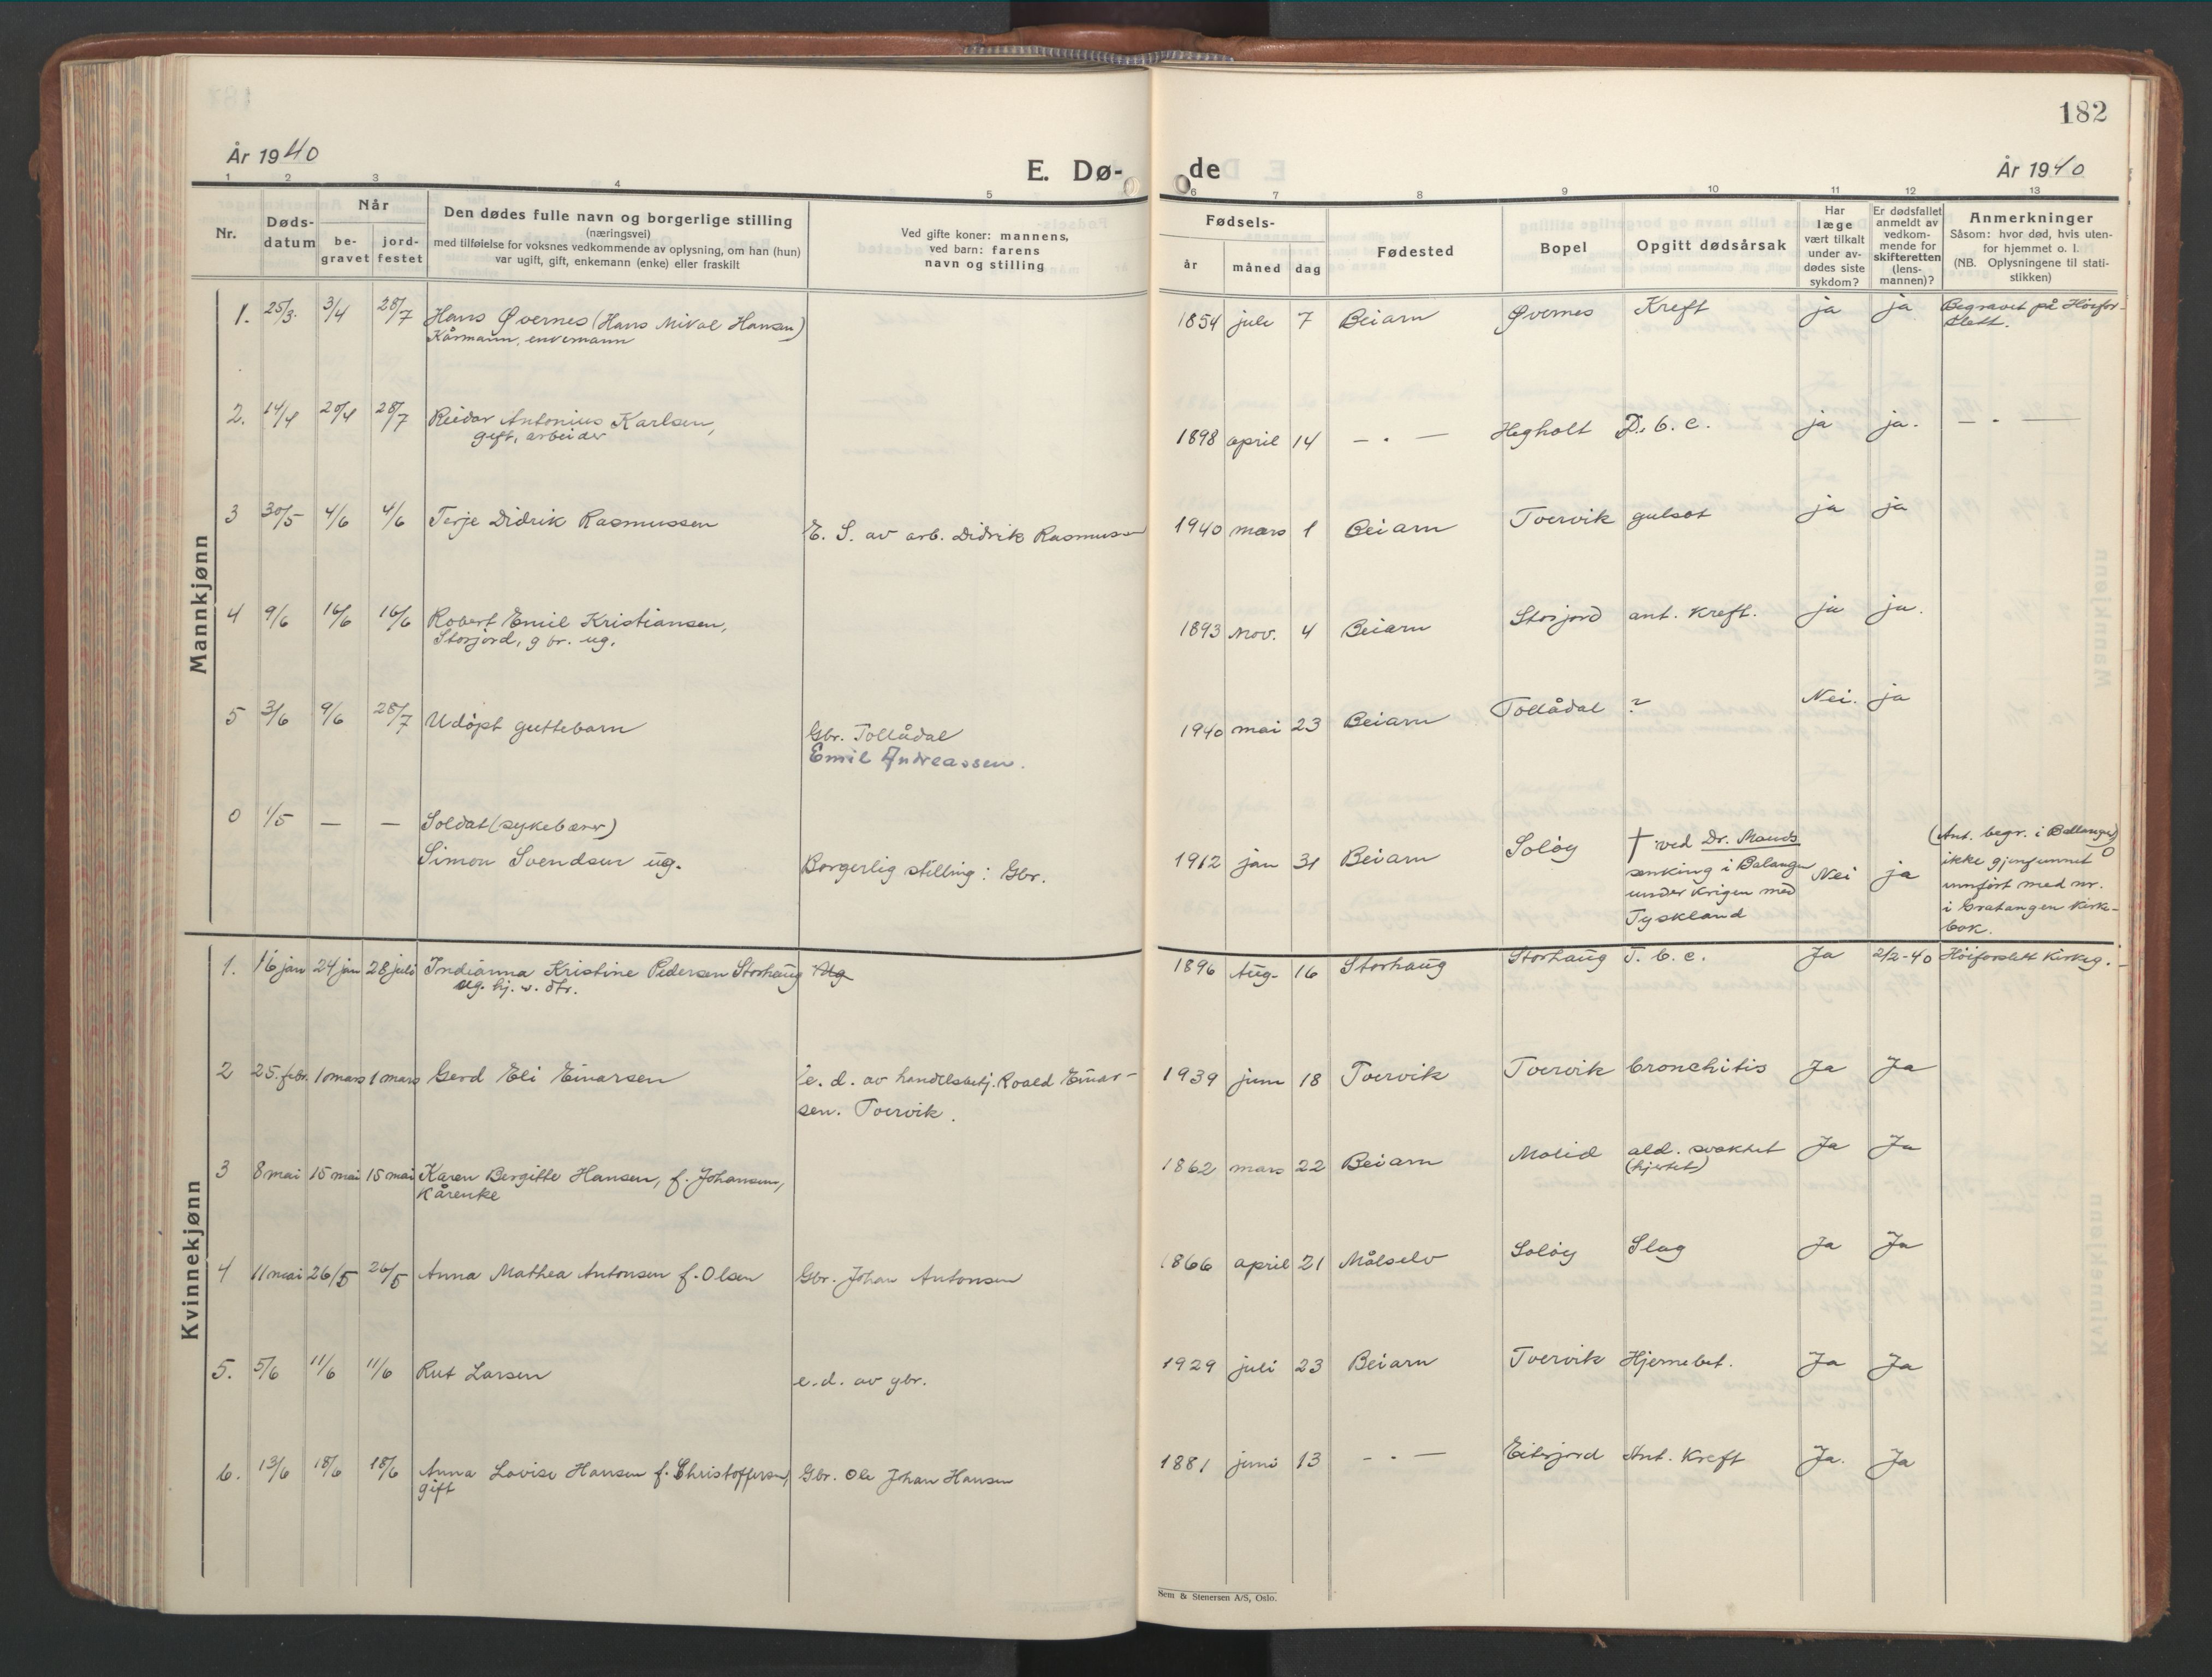 182
År 1940
E. Dø-
de
År 1940
1 2 3 4 5 6 7 8 9 10 11 12 13
Nr.
Døds-
datum
Når
be-
gravet
jord-
festet
Den dødes fulle navn og borgerlige stilling
(næringsvei)
med tilføielse for voksnes vedkommende av oplysning, om han (hun)
var ugift, gift, enkemann (enke) eller fraskilt
Ved gifte koner: mannens,
ved barn: farens
navn og stilling
Fødsels-
år måned dag
Fødested
Bopel
Opgitt dødsårsak
Har
læge
vært tilkalt
under av-
dødes siste
sykdom?
Er dødsfallet
anmeldt av
vedkom-
mende for
skifteretten
(lens-
mannen)?
Anmerkninger
Såsom: hvor død, hvis uten-
for hjemmet o. l.
(NB. Oplysningene til stati-
stikken)
Mannkjønn
1. 25/3. 3/4 28/7 Hans Øvernes (Hans Mikal Hansen) 1854 juli 7 Beiarn Øvernes Kreft ja ja Begravet på Høifor-
Kårmann, enkemann slett.
2. 14/4 20/4 28/7 Reidar Antonius Karlsen, 1898 april 14 — . — Hegholt T. b. c. ja ja. — . —
gift, arbeider
3 30/5 4/6 4/6 Terje Didrik Rasmussen E. S. av arb. Didrik Rasmussen 1940 mars 1 Beiarn Tvervik gulsot ja ja
4 9/6 16/6 16/6 Robert Emil Kristiansen, 1893 Nov. 4 Beiarn Storjord ant. kreft. ja ja.
Storjord, g br. ug.
5 3/6 9/6 28/7 Udøpt guttebarn Gbr. Tollådal 1940 mai 23 Beiarn Tollådal ? Nei. ja
Emil Andreassen.
0 1/5 — — Soldat (sykebærer)
Simon Svendsen ug. Borgerlig stilling: Gbr. 1912 jan 31 Beiarn Soløy † ved Dr. Mauds
senking i Balangen
under krigen med
Tyskland
Nei ja
(Ant. begr. i Ballangen)
ikke gjenfunnet 0
innført med nr.
i Gratangen kirke-
bok.
Kvinnekjønn
1. 16 jan 24 jan 28 juli Indianna Kristine Pedersen Storhaug Ug 1896 Aug. 16 Storhaug Storhaug T. b. c. Ja 2/2-40 Høiforslett Kirkeg.
ug. hj. v. dtr.
2 25. febr. 10 mars 1 mars Gerd Eli Einarsen e. d. av handelsbetj. Roald Einar- 1939 juni 18 Tvervik Tvervik bronchitis Ja Ja
sen. Tvervik.
3 8 mai 15 mai 15 mai Karen Bergitte Hansen, f. Johansen, 1862 mars 22 Beiarn Molid ald. svakhet Ja Ja
Kårenke (hjertet)
4 11 mai 26/5 26/5 Anna Mathea Antonsen f. Olsen Gbr. Johan Antonsen 1866 april 21 Målselv Soløy Slag Ja Ja
5. 5/6 11/6 11/6 Rut Larsen e. d. av gbr. 1929 juli 23 Beiarn Tvervik Hjernebet. Ja Ja
6. 13/6 18/6 18/6 Anna Lovise Hansen f. Christoffersen, Gbr. Ole Johan Hansen 1881 juni 13 — . — Eiterjord Ant. Kreft Ja. Ja
gift
Sem & Stenersen A/S, Oslo.